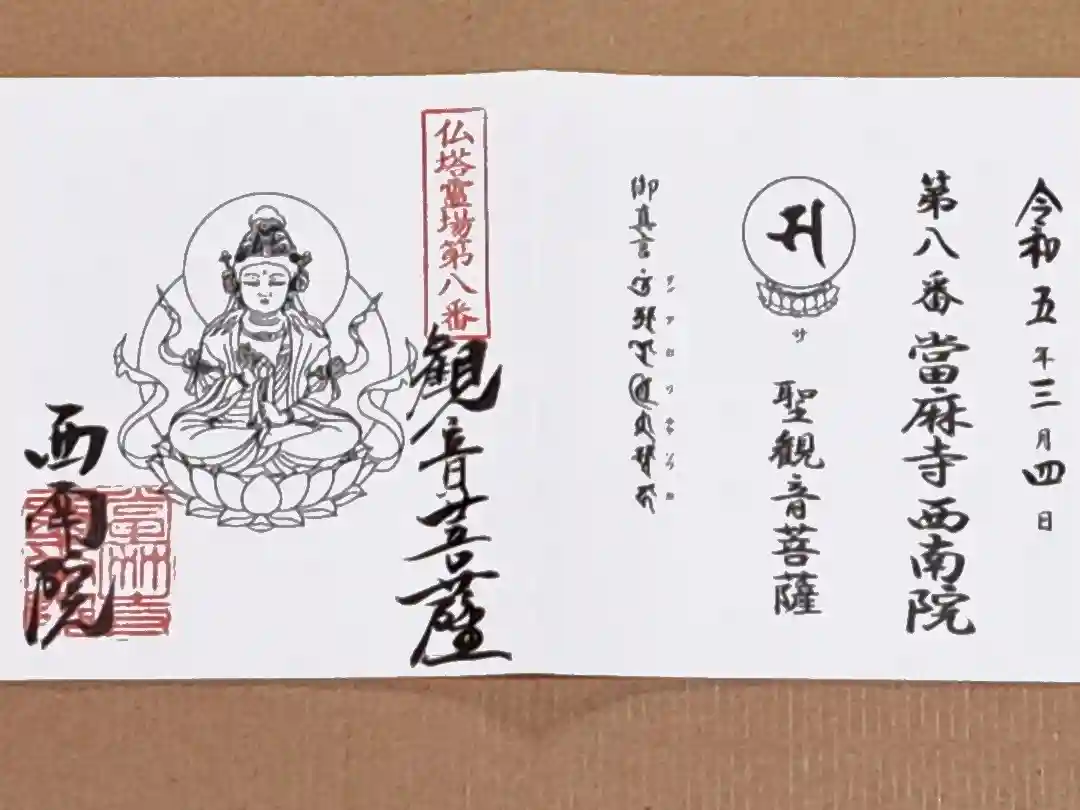 令和五年三月四日
第八番 當麻寺西南院
サ
聖観音菩薩
御真言
仏塔霊場第八番
観音菩薩
西南院